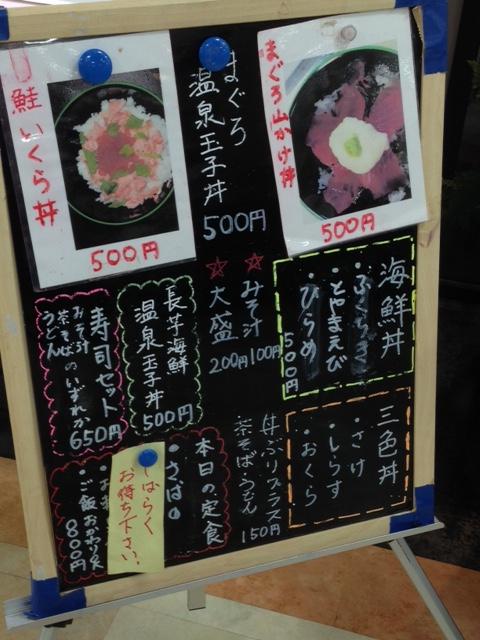 鮭いくら丼
500円
まぐろ
温泉玉子丼
500円
まぐろ山かけ丼
500円
海鮮丼
・ふくらぎ
・とやまえび
・ひらめ
500円
☆みそ汁
100円
☆大盛
200円
長芋海鮮
温泉玉子丼
500円
寿司セット
おみそ汁
茶そばのいずれか
うどん
650円
三色丼
・さけ
・しらす
・おくら
丼ぶりプラス
茶そば・うどん
150円
本日の定食
・さば
ご飯おかわり
800円
しばらく
お待ち下さい。